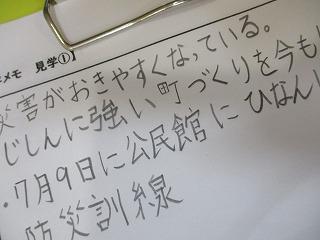 メモ 見学①】
災害がおきやすくなっている。
じしんに強い町づくりを今も
・7月9日に公民館にひなん
防災訓線